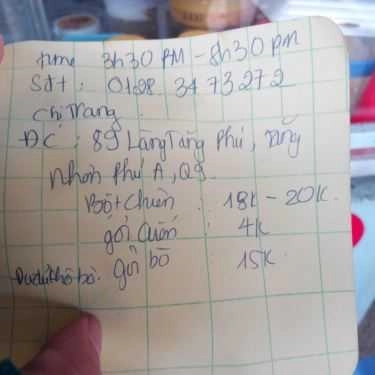 time 3h30 PM - 8h30 PM
Sđt : 0128 34 73 27 2
chị Trang
ĐC : 89 Làng Tăng Phú, Tăng
Nhơn Phú A, Q9.
Bột chiên : 18k - 20k.
gỏi cuốn : 4k
Đu đủ khô bò. gỏi bò : 15k